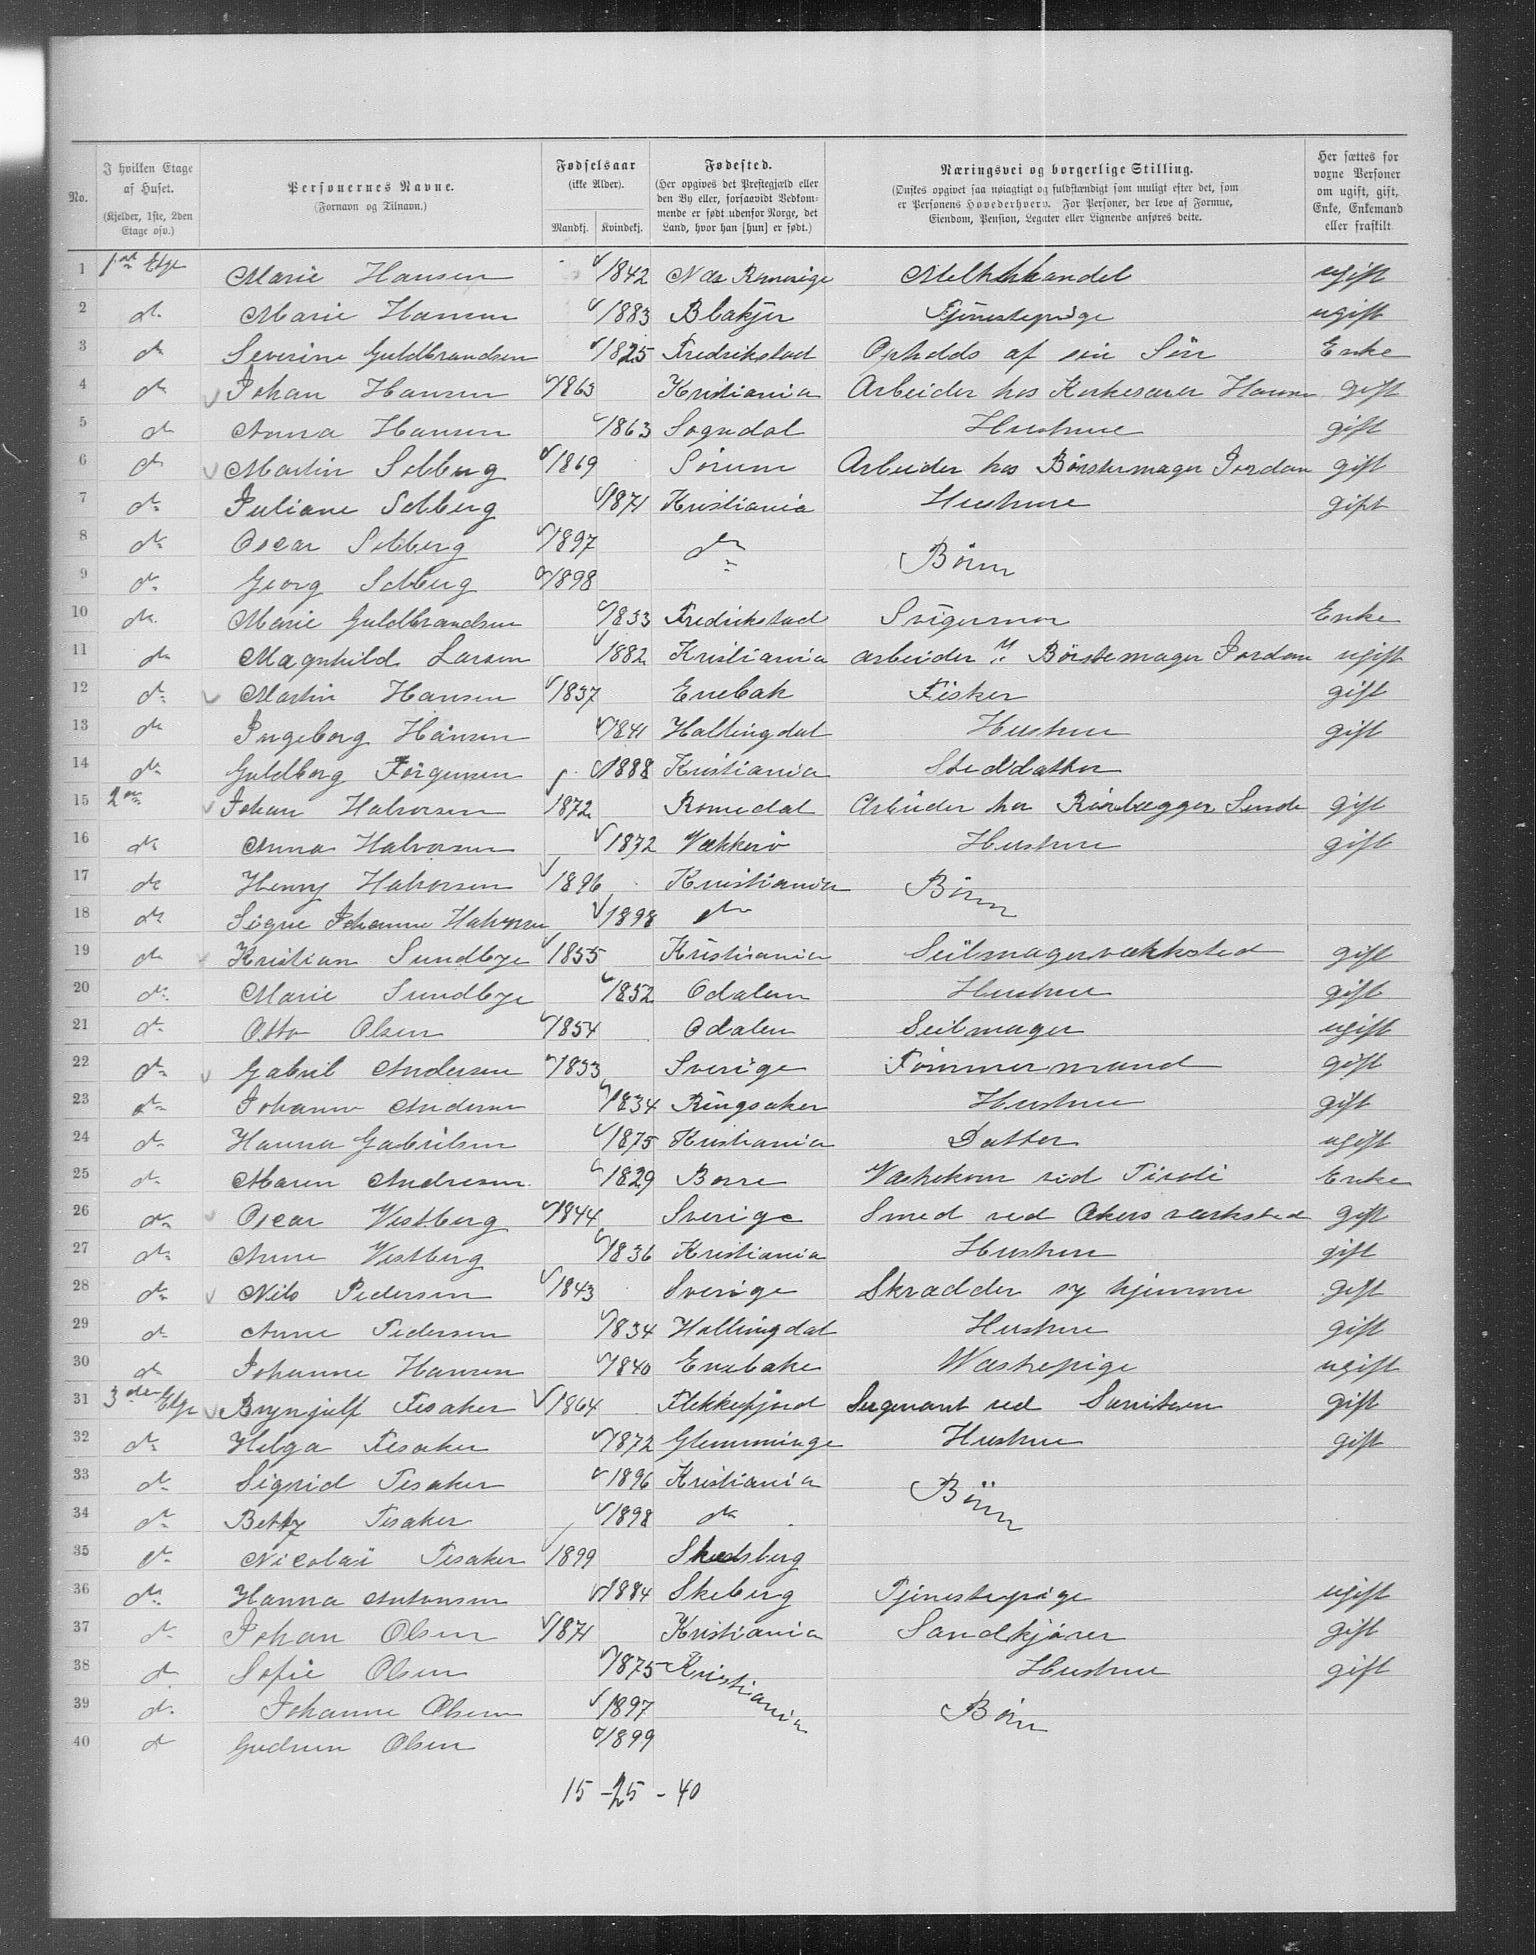 No.
I hvilken Etage af Huset.
(Kjelder, 1ste, 2den Etage osv.)
Personernes Navne.
(Fornavn og Tilnavn.)
Fødselsaar
(ikke Alder).
Mandkj. Kvindekj.
Fødested.
(Her opgives det Prestegjæld eller den By eller, forsaavidt Vedkommende er født udenfor Norge, det Land, hvor han [hun] er født.)
Næringsvei og borgerlige Stilling.
(Ønskes opgivet saa nøiagtigt og fuldstændigt som muligt efter det, som er Personens Hovederhverv. For Personer, der leve af Formue, Eiendom, Pension, Legater eller Lignende anføres dette.)
Her sættes for voxne Personer om ugift, gift, Enke, Enkemand eller fraskilt.
1 1ste Etge Marie Hansen 1842 Næs Romerige Melkhandel ugift
2 do Marie Hansen 1883 Blakjer Tjenestepige ugift
3 do Severine Guldbrandsen 1825 Fredrikstad Opholds af sin Søn Enke
4 do Johan Hansen 1863 Kristiania Arbeider hos Hansen gift
5 do Anna Hansen 1863 Sogndal Hustrue gift
6 do Martin Solberg 1869 Sørum Arbeider hos Børstemager Jordan gift
7 do Juliane Solberg 1871 Kristiania Hustrue gift
8 do Oscar Solberg 1897 do Børn
9 do Georg Solberg 1898
10 do Marie Guldbrandsen 1833 Fredrikstad Svigermor Enke
11 do Magnhild Larsen 1882 Kristiania arbeider " Børstemager Jordan ugift
12 do Martin Hansen 1837 Enebak Fisker gift
13 do Ingeborg Hansen 1841 Hallingdal Hustrue gift
14 do Guldborg Jørgensen 1888 Kristiania Steddatter
15 2den Johan Halvorsen 1872 Romedal Arbeider hos Rørlægger Sunde gift
16 do Anna Halvorsen 1872 Vækkerø Hustrue gift
17 do Henry Halvorsen 1896 Kristiania Børn
18 do Signe Johanne Halvorsen 1898 do
19 do Kristian Sundbye 1855 Kristiania Seilmagerværksted gift
20 do Marie Sundbye 1852 Odalen Hustrue gift
21 do Otto Olsen 1854 Odalen Seilmager ugift
22 do Gabriel Andersen 1833 Sverige Tømmermand gift
23 do Johanne Andersen 1834 Ringsaker Hustrue gift
24 do Hanna Gabrilsen 1875 Kristiania Datter ugift
25 do Maren Andresen 1829 Borre Vaskekone ved Tivoli Enke
26 do Oscar Vestberg 1844 Sverige Smed ved Akers værksted gift
27 do Anne Vestberg 1836 Kristiania Hustrue gift
28 do Nils Pedersen 1843 Sverige Skrædder sy hjemme gift
29 do Anne Pedersen 1834 Hallingdal Hustrue gift
30 do Johanne Hansen 1840 Enebake Waskepige ugift
31 3die Etge Brynjulf Tesaker 1864 Flekkefjord Sergeant ved gift
32 do Helga Tesaker 1872 Glemminge Hustrue gift
33 do Sigrid Tesaker 1896 Kristiania Børn
34 do Betty Tesaker 1898 do
35 do Nicolai Tesaker 1899
36 do Hanna Antonsen 1884 Skeberg Tjenestepige ugift
37 do Johan Olsen 1871 Kristiania Sandkjører gift
38 do Sofie Olsen 1875 Kristiania Hustrue gift
39 do Johanne Olsen 1897 Børn
40 do Gudrun Olsen 1899
15 - 25 - 40